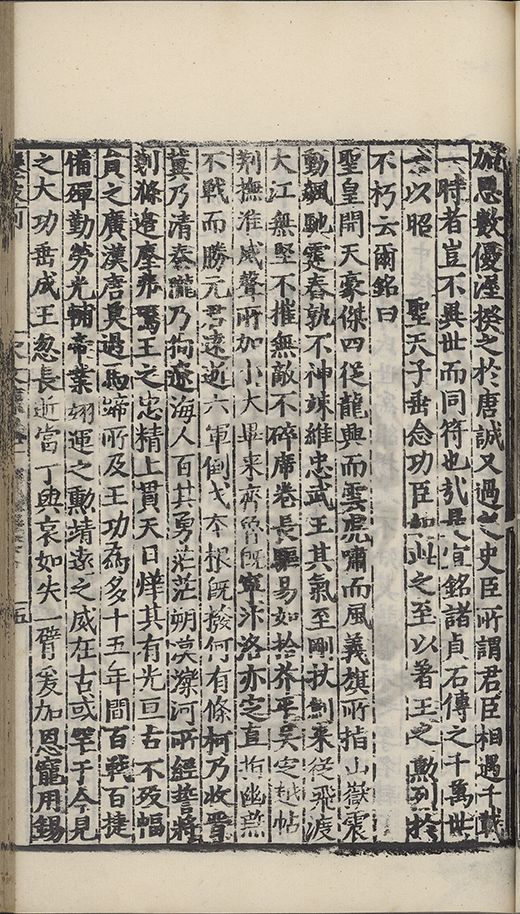 加恩數優渥揆之於唐誠又過之史臣所謂君臣相遇千載
一時者豈不異世而同符也哉是宜銘諸貞石傳之千萬世
以昭 聖天子垂念功臣如此之至以著王之勳烈於
不朽云爾銘曰
聖皇開天豪傑四從龍興而雲虎嘯而風義旗所指山嶽震
動飆馳霆舂孰不神竦維忠武王其氣至剛杖劍来從飛渡
大江無堅不摧無敵不碎席卷長驅易如拾芥平吴定越帖
荆撫淮威聲所加小大畢来齊魯既寧汴洛亦定直擣幽燕
不戰而勝元君遠逝六軍倒戈本根既撥何有條柯乃收晋
冀乃清秦隴乃徇遼海人百其勇茫茫朔莫灤河所經誓將
剗滌邊摩弗驚王之忠精上貫天日燁其有光亘古不歿幅
員之廣漢唐莫過馬蹄所及王功為多十五年間百戰百捷
備殫勤勞光輔帝業翊運之勳靖遠之威在古或罕于今見
之大功垂成王忽長逝當丁興哀如失一臂爰加恩寵用錫
五